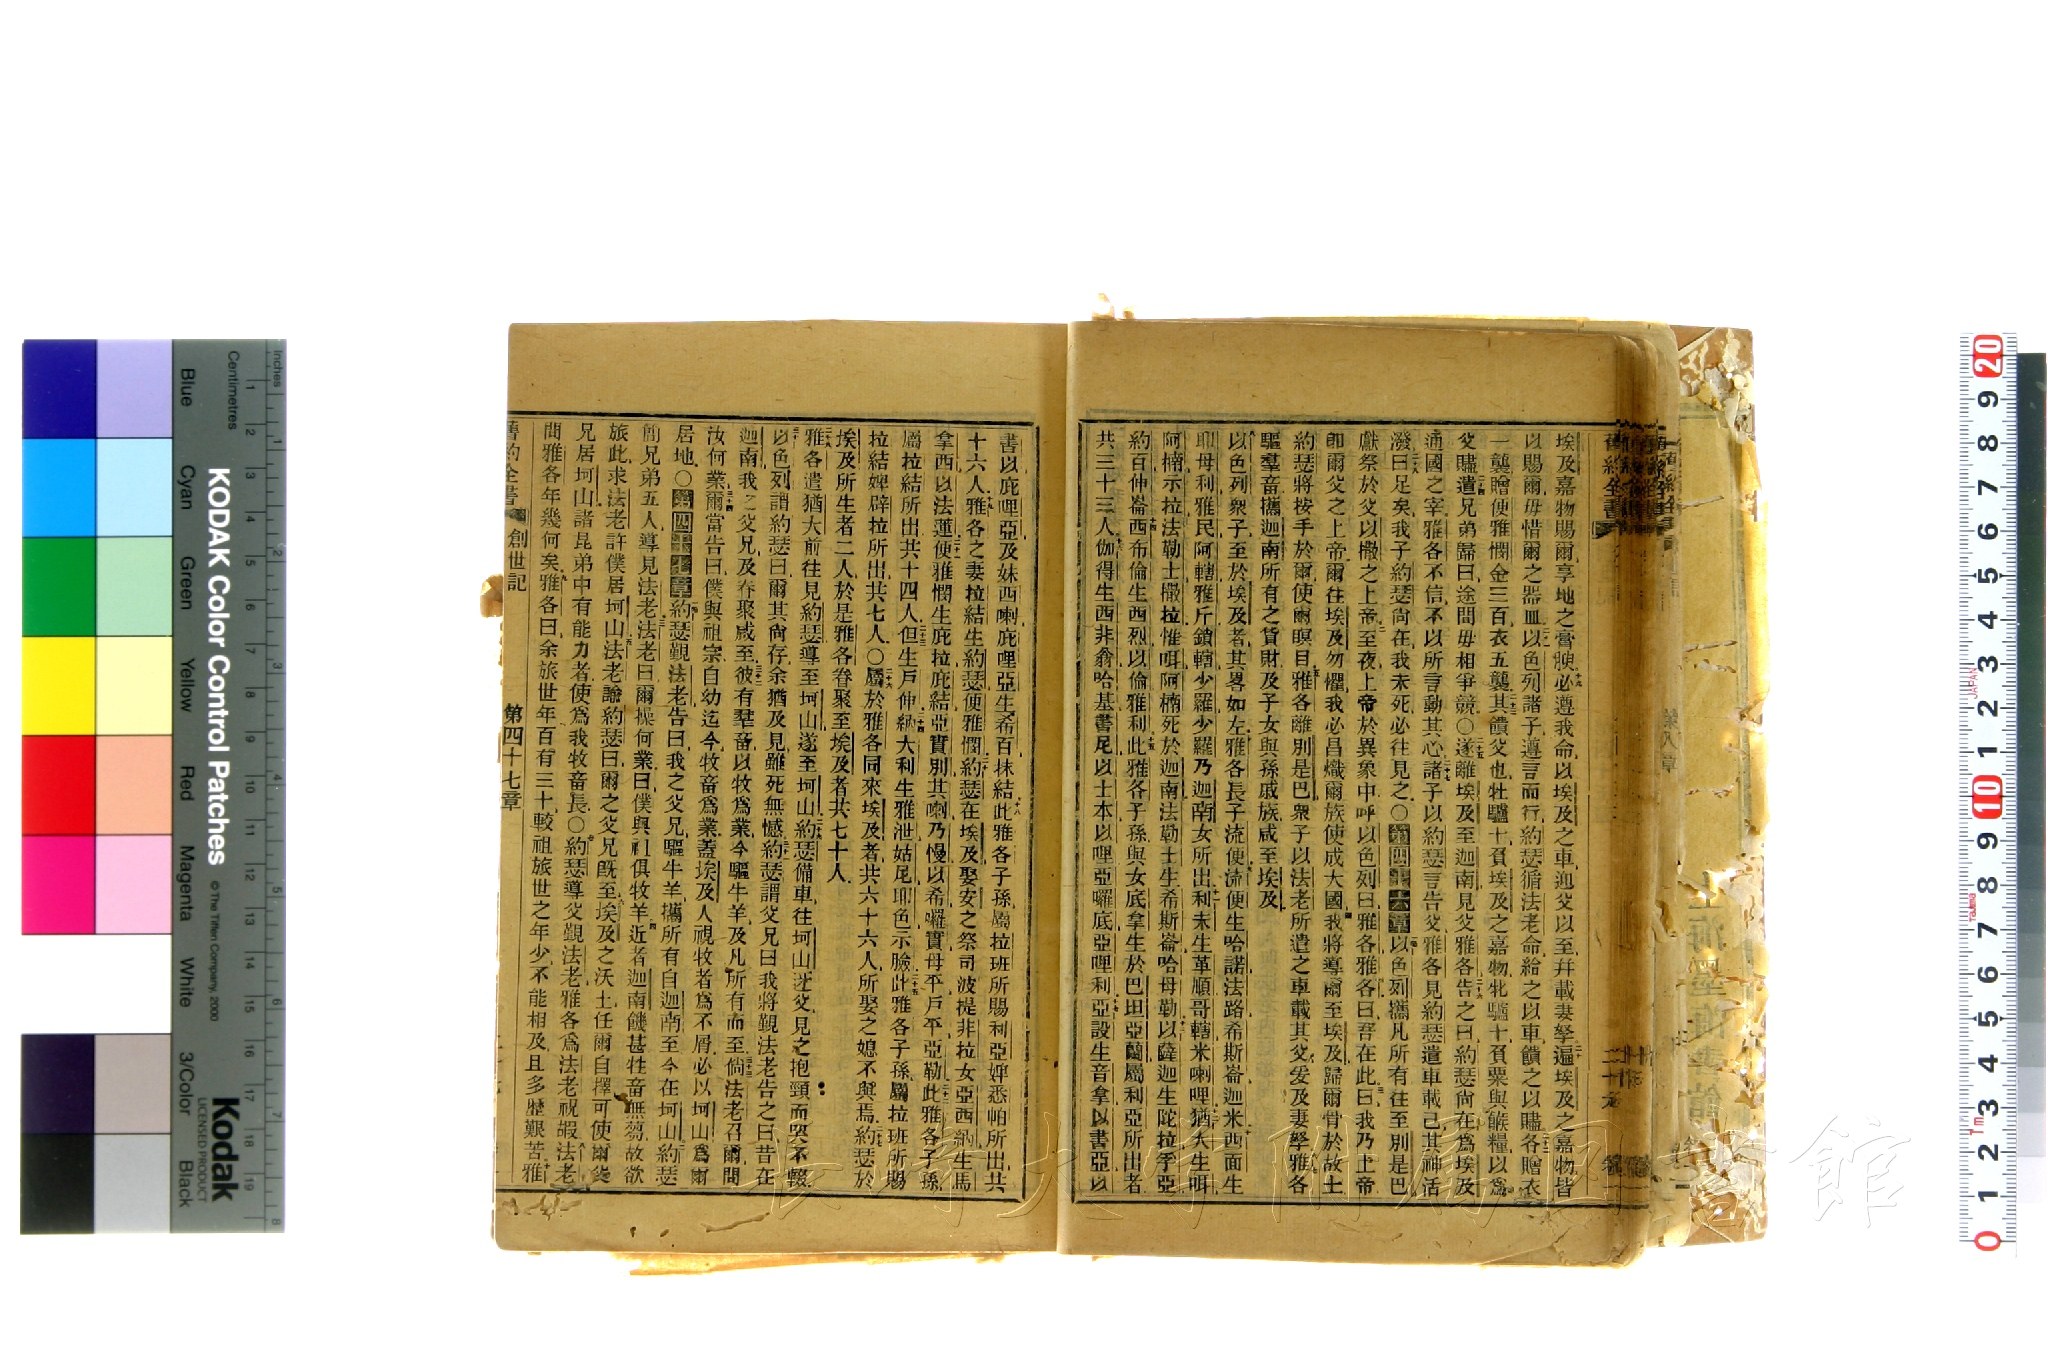 埃及嘉物賜爾享地之膏腴必遵我命以埃及之車迎父以至并載妻孥遍埃及之嘉物皆
以賜爾毋惜爾之器皿以色列諸子遵言而行約瑟循法老命給之以車饋之以贐各贈衣
一襲贈便雅憫金三百衣五襲其饋父也牡驢十負埃及之嘉物牝驢十負粟與餱糧以爲
父贐遣兄弟歸曰途間毋相爭競〇遂離埃及至迦南見父雅各告之曰約瑟尙在爲埃及
通國之宰雅各不信不以所言動其心諸子以約瑟言告父雅各見約瑟遣車載己其神活
潑曰足矣我子約瑟尙在我未死必往見之〇第四十六章以色列攜凡所有往至別是巴
獻祭於父以撒之上帝至夜上帝於異象中呼以色列曰雅各雅各曰吾在此曰我乃上帝
即爾父之上帝爾往埃及勿懼我必昌熾爾族使成大國我將導爾至埃及歸爾骨於故土
約瑟將按手於爾使爾瞑目雅各離別是巴衆子以法老所遣之車載其父爰及妻孥雅各
驅羣畜攜迦南所有之貨財及子女與孫戚族咸至埃及
以色列衆子至於埃及者其畧如左雅各長子流便流便生哈諾法路希斯崙迦米西面生
耶母利雅民阿轄雅斤鎖轄少羅少羅乃迦南女所出利未生革順哥轄米喇哩猶大生咡
阿楠示拉法勒士撒拉惟咡阿楠死於迦南法勒士生希斯崙哈母勒以薩迦生陀拉孚亞
約百伸崙西布倫生西烈以倫雅利此雅各子孫與女底拿生於巴坦亞蘭屬利亞所出者
共三十三人伽得生西非翁哈基書尼以士本以哩亞囉底亞哩利亞設生音拿以書亞以
書以庇哩亞及妹西喇庇哩亞生希百抹結此雅各子孫屬拉班所賜利亞婢悉帕所出共
十六人雅各之妻拉結生約瑟便雅憫約瑟在埃及娶安之祭司波提非拉女亞西納生馬
拿西以法蓮便雅憫生庇拉庇結亞實別其喇乃慢以希囉實母平戶平亞勒此雅各子孫
屬拉結所出共十四人但生戶伸納大利生雅泄姑尼耶色示臉此雅各子孫屬拉班所賜
拉結婢辟拉所出共七人〇屬於雅各同來埃及者共六十六人所娶之媳不與焉約瑟於
埃及所生者二人於是雅各眷聚至埃及者共七十人
雅各遣猶大前往見約瑟導至坷山遂至坷山約瑟備車往坷山迓父見之抱頸而哭不輟
以色列謂約瑟曰爾其尙存余猶及見雖死無憾約瑟謂父兄曰我將覲法老告之曰昔在
迦南我之父兄及眷聚咸至彼有羣畜以牧爲業今驅牛羊及凡所有而至倘法老召爾問
汝何業爾當告曰僕與祖宗自幼迄今牧畜爲業蓋埃及人視牧者爲不屑必以坷山爲爾
居地〇第四十七章約瑟覲法老告曰我之父兄驅牛羊攜所有自迦南至今在坷山約瑟
簡兄弟五人導見法老法老曰爾操何業曰僕與祖俱牧羊近者迦南饑甚牲畜無芻故欲
旅此求法老許僕居坷山法老諭約瑟曰爾之父兄既至埃及之沃土任爾自擇可使爾父
兄居坷山諸昆弟中有能力者使爲我牧畜長〇約瑟導父覲法老雅各爲法老祝嘏法老
問雅各年幾何矣雅各曰余旅世年百有三十較祖旅世之年少不能相及且多歷艱苦雅
舊約全書 創世記 第四十七章
長崎大学附属図書館
KODAK Color Control Patches
© The Tiffen Company, 2000
Kodak
LICENSED PRODUCT
Inches
Centimetres
Blue
Cyan
Green
Yellow
Red
Magenta
White
3/Color
Black